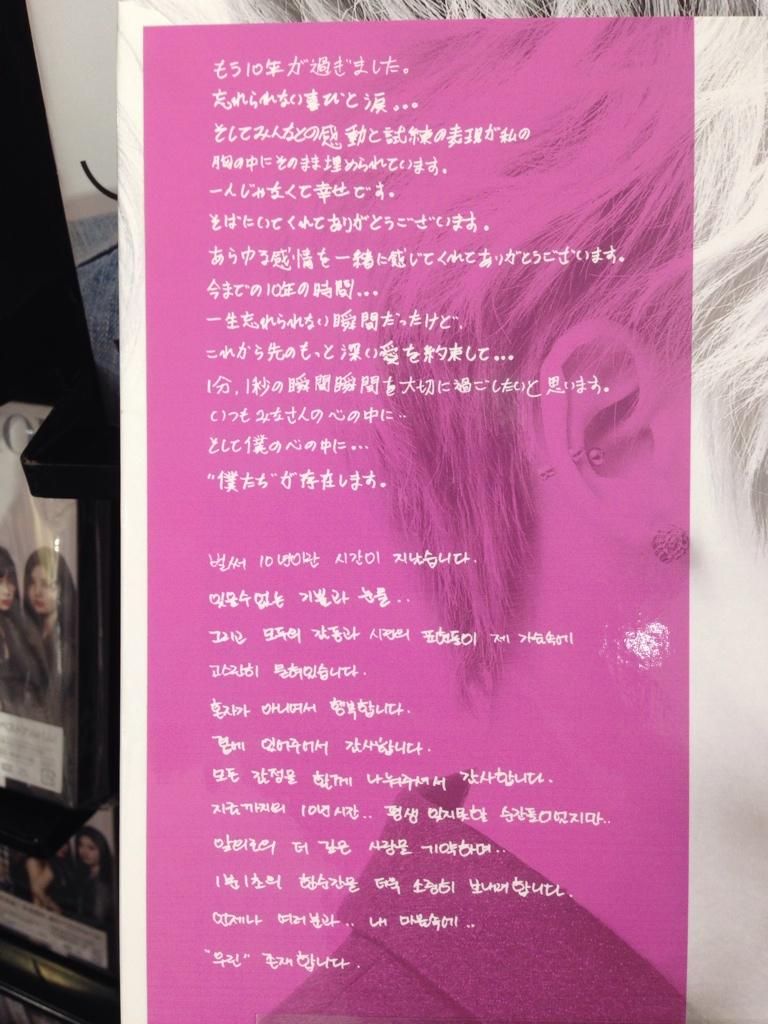 もう10年が過ぎました。
忘れられない喜びと涙...
そしてみんなとの感動と試練の表現が私の
胸の中にそのまま埋められています。
一人じゃなくて幸せです。
そばにいてくれてありがとうございます。
あらゆる感情を一緒に感じてくれてありがとうございます。
今までの10年の時間...
一生忘れられない瞬間だったけど、
これから先のもっと深い愛を約束して...
1分，1秒の瞬間瞬間を大切に過ごしたいと思います。
いつもみなさんの心の中に..
として僕の心の中に...
"僕たち"が存在します。
벌써 10년이란 시간이 지났습니다.
잊을수없는 기쁨과 눈물..
그리고 모두의 감동과 시련의 표현들이 제 가슴속에
고스란히 묻혀있습니다.
혼자가 아니여서 행복합니다.
곁에 있어주어서 감사합니다.
모든 감정을 함께 나눠주셔서 감사합니다.
지금까지의 10년시간.. 평생 잊지못할 순간들이었지만..
앞으로의 더 깊은 사랑을 기약하며..
1분1초의 한순간을 더욱 소중히 보내려합니다.
언제나 여러분과.. 내 마음속에..
"우린" 존재합니다.